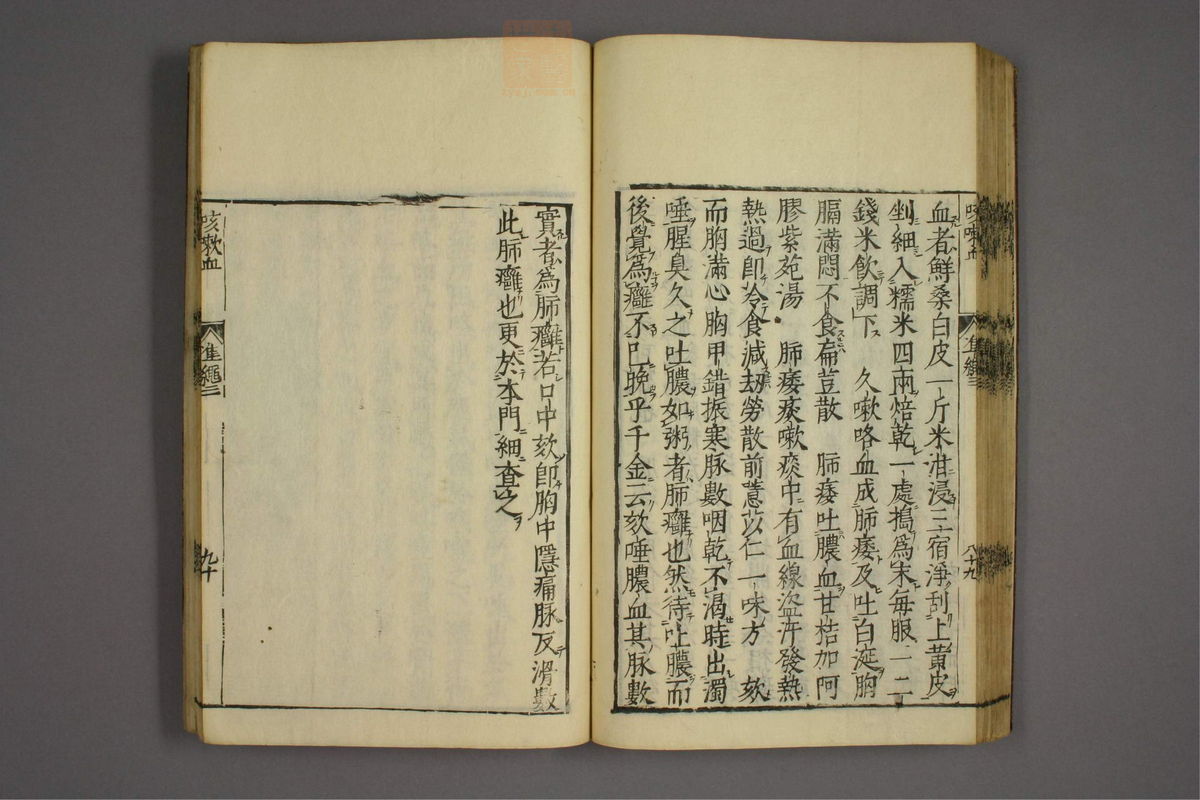 咳嗽血
準繩三
八十九
血者鮮桑白皮一斤米泔浸三宿淨刮上黃皮
剉細入糯米四兩焙乾一處搗為末每服一二
錢米飲調下　久嗽咯血成肺痿及吐白涎胸
膈滿悶不食扁荳散　肺痿吐膿血甘桔加阿
膠紫菀湯　肺痿痰嗽痰中有血線盜汗發熱
熱過即冷食減劫勞散前薏苡仁一味方　欬
而胸滿心胸甲錯振寒脉數咽乾不渴時出濁
唾腥臭久之吐膿如粥者肺癰也然待吐膿而
後覺為癰不已晚乎千金云欬唾膿血其脉數
實者為肺癰若口中欬即胸中隱痛脉反滑數
此肺癰也更於本門細查之
咳嗽血
準繩三
九十